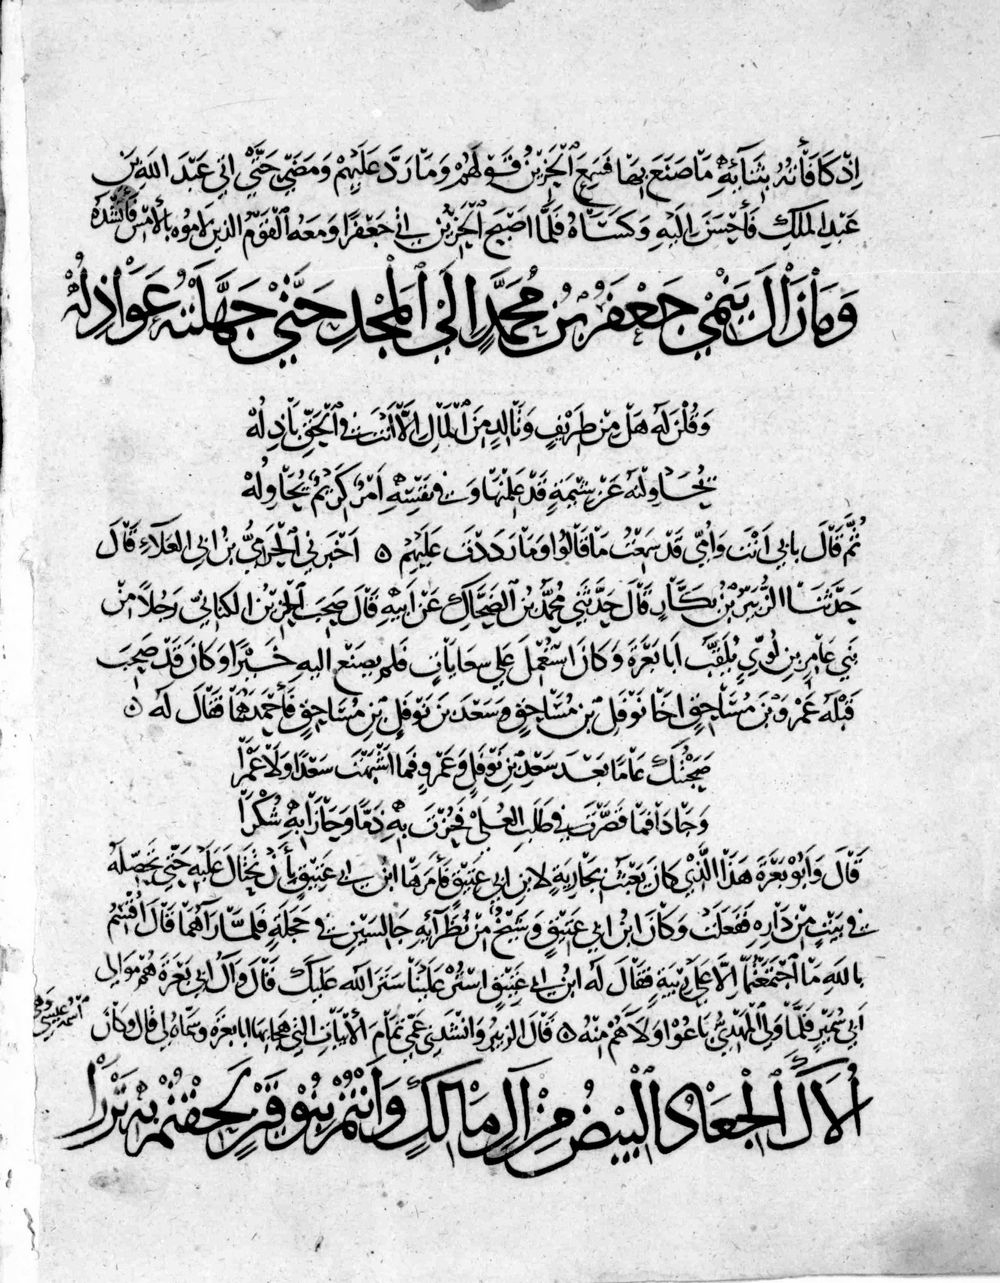 اذ كافأته بثنآئه ما صنع بها فسمع الحزين قولهم وما رد عليهم ومضى حتى اتى عبد الله بن
عبد الملك فأحسن اليه وكساه فلما اصبح الحزين اتى جعفرا ومعه القوم الذين لاموه بالامس فأنشده
وما زال ينمي جعفر بن محمد الى المجد حتى جهلته عواذله
وقلن له هل من طريف وتالد من المال الا انت في الحق باذله
يحاولنه عن شيمة قد علمنها وفي نفسه امر كريم يحاوله
ثم قال بابي انت وامي قد سمعت ما قالوا وما رددت عليهم ٥ اخبرني الحرمي بن ابي العلاء قال
حدثنا الزبير بن بكار قال حدثني محمد بن الضحاك عن ابيه قال صحب الحزين الكناني رجلا من
بني عامر بن لؤي يلقب ابا بعرة وكان استعمل على سعايات فلم يصنع اليه خيرا وكان قد صحب
قبله عمرو بن مساحق اخا نوفل بن مساحق وسعد بن نوفل بن مساحق فأحمدهما فقال له ٥
صحبتك عاما بعد سعد بن نوفل وعمرو فما اشبهت سعدا ولا عمرا
وجادا فما قصرت في طلب العلى فحزت به ذما وحازا به شكرا
قال وابو بعرة هذا الذي كان يعبث بجارية لابن ابي عتيق فأمرها ابن ابي عتيق بأن تحتال عليه حتى تحصله
في بيت من داره ففعلت وكان ابن ابي عتيق وشيخ من نظرآئه جالسين في حجلة فلما رآهما قال اقسم
بالله ما اجتمعتما الا على ريبة فقال له ابن ابي عتيق استر علينا ستر الله عليك قال وآل ابي بعرة هم موالي
ابي سمير فلما ولي المهدي باعوا ولاءهم منه ٥ قال الزبير وانشدني عمي تمام الابيات التي هجا بها ابا بعرة وسماه لي فقال وكان اسمه عيسى وهي
الا ان الجعاد البيض من آل مالك وانتم بنو قين لحقتم به نزرا